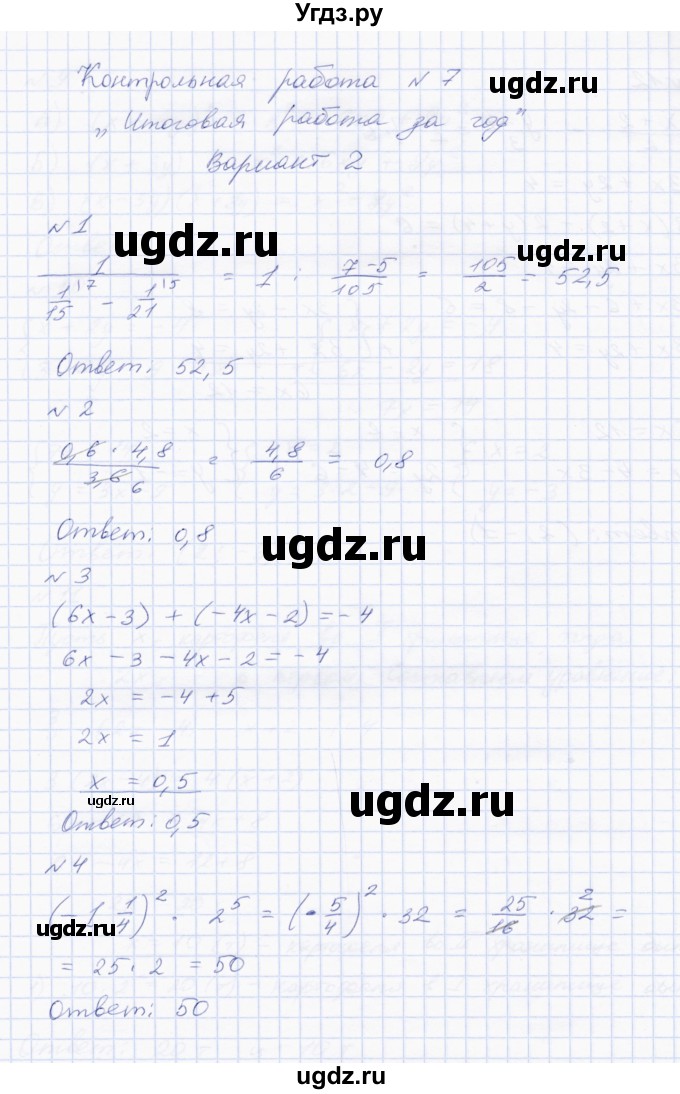 Угдз.ру
Контрольная работа №7 ugdz.ru
„Итоговая работа за год"
Вариант 2
№1
ugdz.ru ugdz.ru
1/(1/15^{17} - 1/21^{15}) = 1 : (7-5)/105 = 105/2 = 52,5
Ответ: 52,5
№2
(0,6 · 4,8)/(3,6 6) = 4,8/6 = 0,8
Ответ: 0,8
ugdz.ru
№3
(6x - 3) + (-4x - 2) = -4
6x - 3 - 4x - 2 = -4
2x = -4 + 5
2x = 1
x = 0,5
ugdz.ru ugdz.ru
Ответ: 0,5
№4
(-1 1/4)² · 2⁵ = (-5/4)² · 32 = 25/16 · 32 2 =
ugdz.ru
= 25 · 2 = 50
Ответ: 50
ugdz.ru